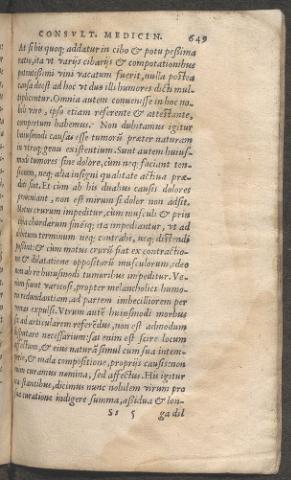 CONSVLT. MEDICIN. 649
At si his quoq; addatur in cibo & potu pessima
ratio, ita vt varijs cibarijs & compotationibus
potentissimi vini vacatum fuerit, nulla postea
causa deest ad hoc vt duo illi humores dicti mul-
tiplicentur. Omnia autem conuenisse in hoc no-
bili viro, ipso etiam referente & attestante,
compertum habemus. Non dubitamus igitur
huiusmodi causas esse tumorũ præter naturam
in vtroq; genu existentium. Sunt autem huius-
modi tumores sine dolore, cùm neq; faciant ten-
sionem, neq; alia insigni qualitate actiua præ-
diti sint. Et cùm ab his duabus causis dolores
proueniant, non est mirum si dolor non adsit.
Motus crurum impeditur, cùm musculi & prin
cipia chordarum sinéisq; ita impediantur, vt ad
vltimum terminum neq; contrahi, neq; distendi
possint: & cùm motus crurũ fiat ex contractio-
ne & dilatatione oppositorũ musculorum, ideo
non ab re huiusmodi tumoribus impeditur. Ve-
niam sunt varicosi, propter melancholici humo-
ris redundantiam, ad partem imbecilliorem per
venas expulsi. Vtrum autẽ huiusmodi morbus
sit ad articularem referẽdus, non est admodum
disputare necessarium: sat enim est scire locum
affectum, & eius naturã simul cum sua intem-
perie, & mala compositione, proprijs causis: non
enim curamus nomina, sed affectus. His igitur
ita stantibus, dicimus nunc nobilem virum pro
sua curatione indigere summa, assidua & lon-
Ss 5 ga dil